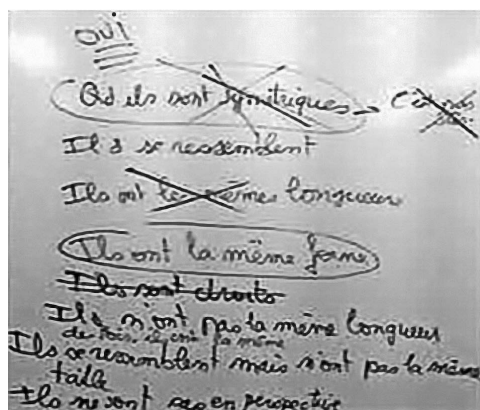 OUI
Qd ils sont symétriques
C'est pas
Ils se ressemblent
Ils ont les mêmes longueurs
Ils ont la même forme
Ils sont droits
Ils n'ont pas la même longueur
la même
Ils se ressemblent mais n'ont pas la même
taille
Ils ne sont pas en perspective